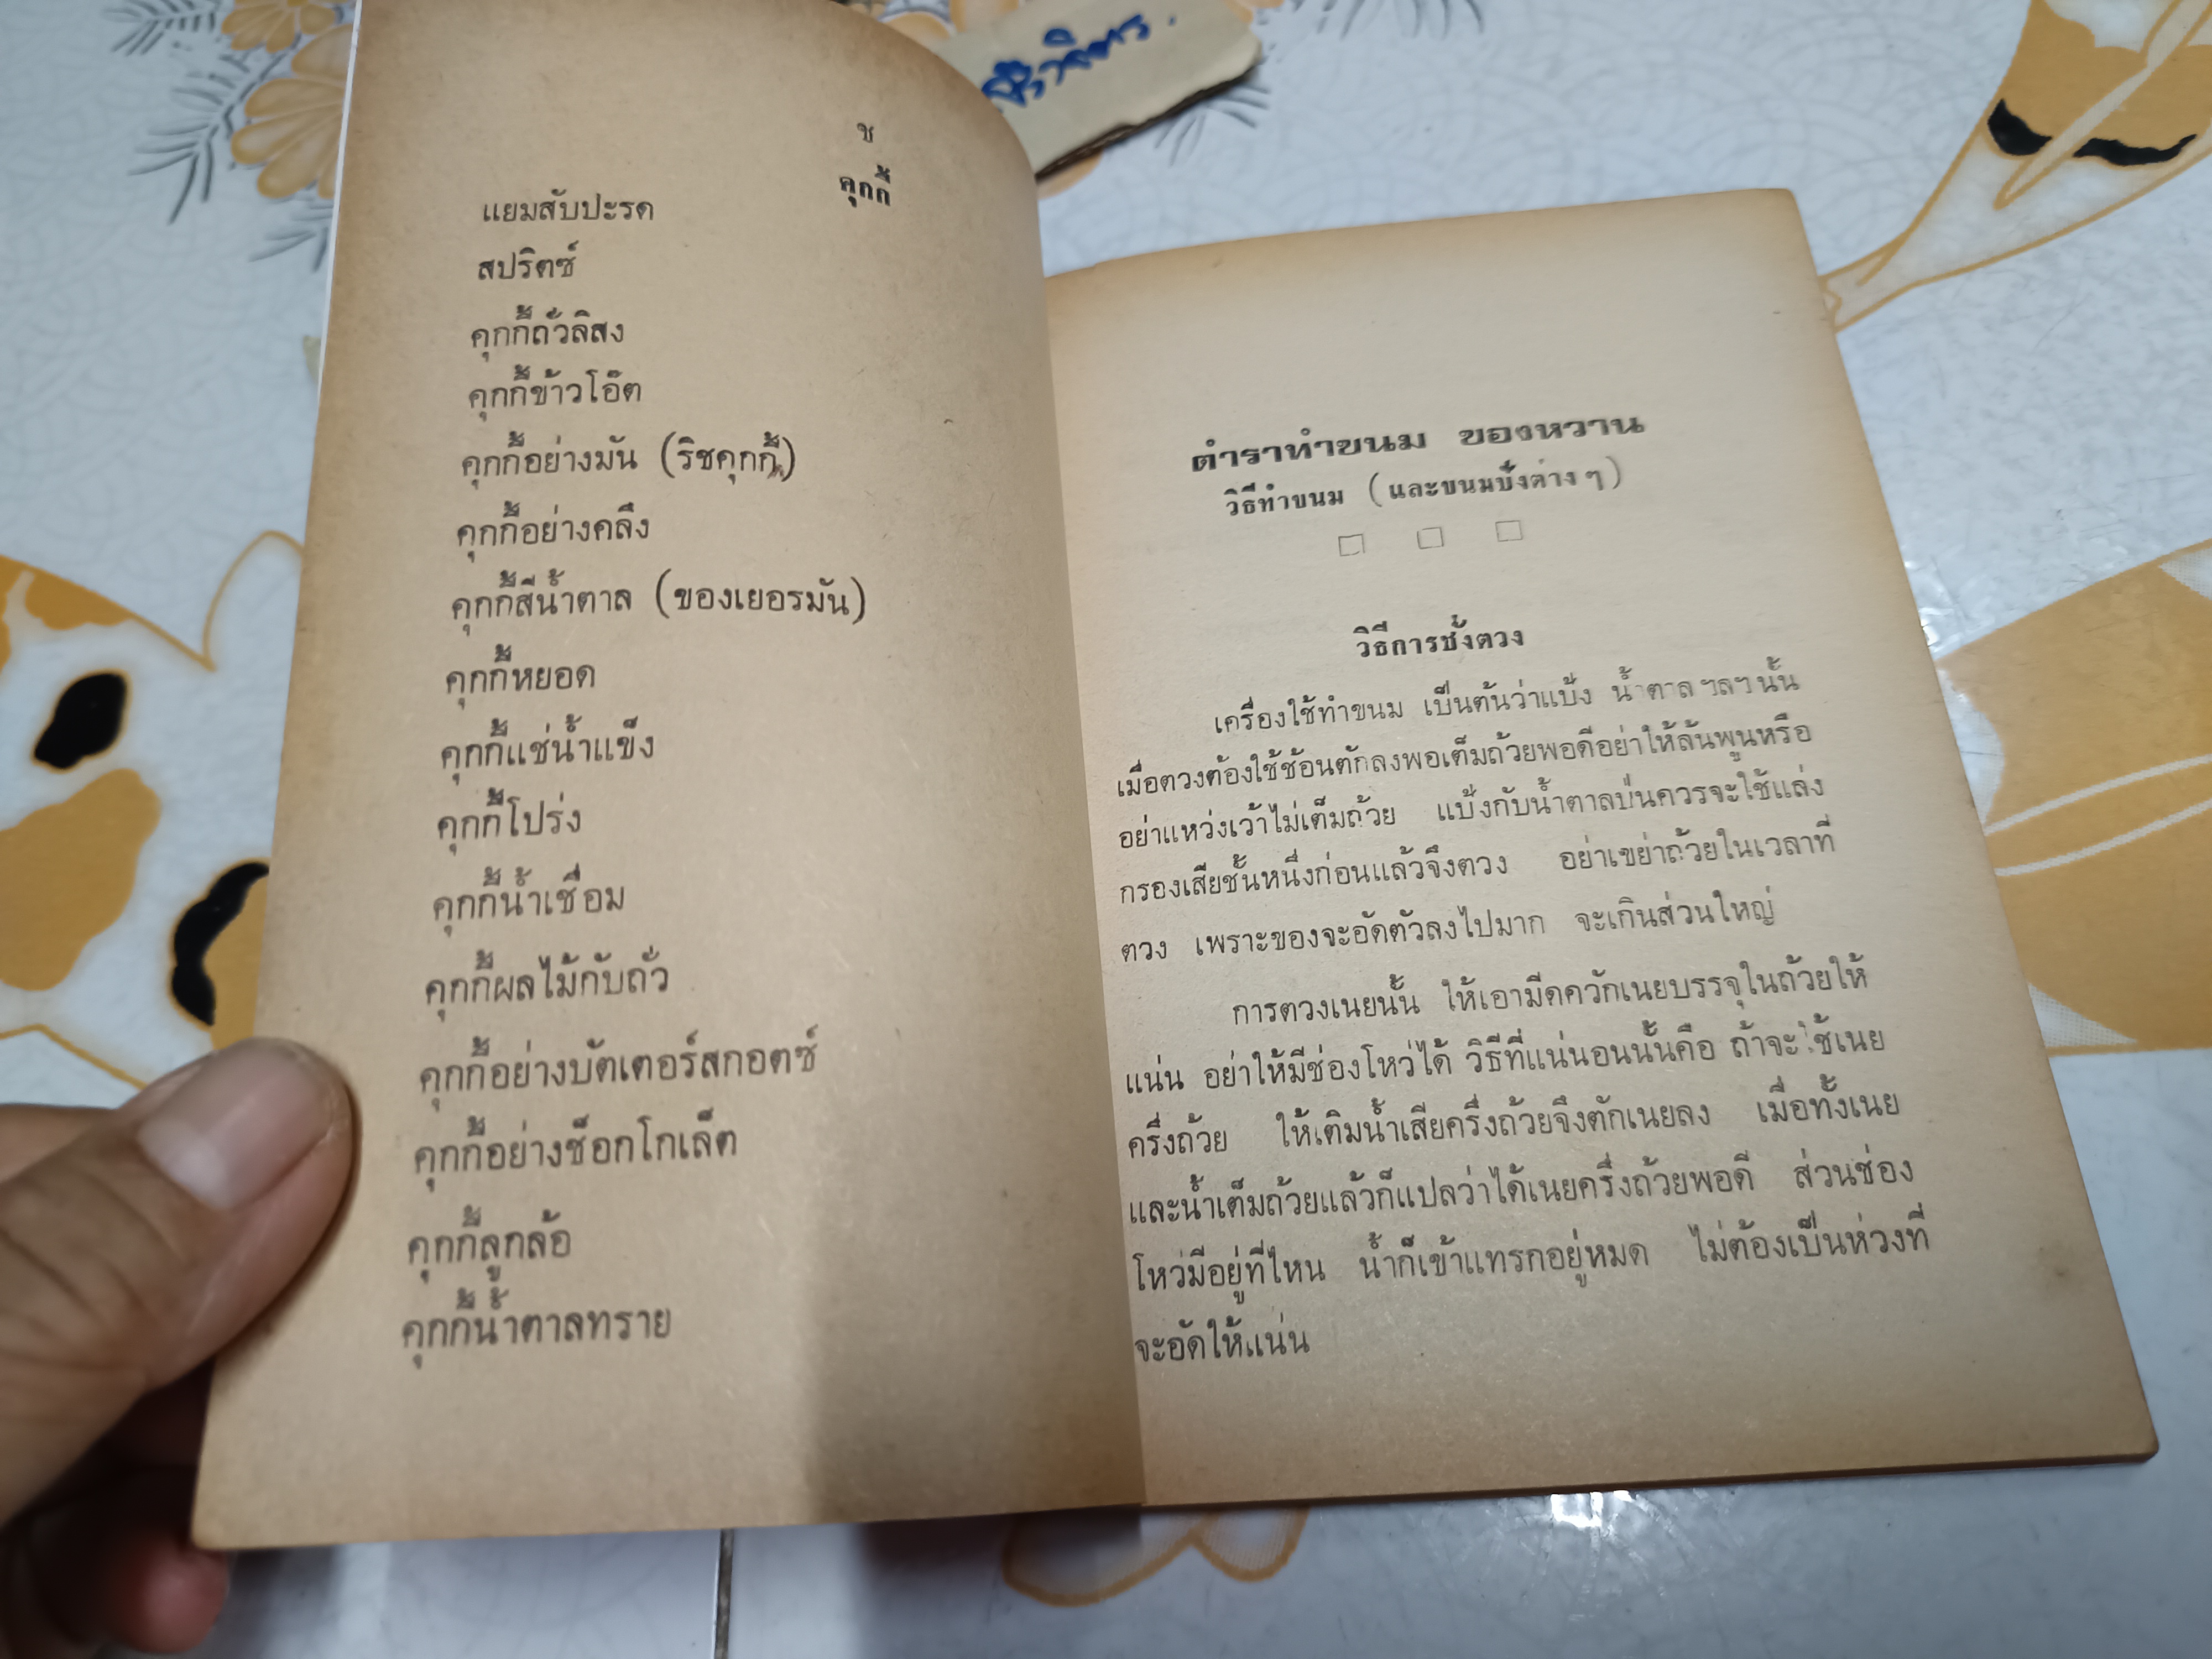 ช
คุกกี้
แยมสับปะรด
สปริตซ์
คุกกี้ถั่วลิสง
คุกกี้ข้าวโอ๊ต
คุกกี้อย่างมัน (ริชคุกกี้)
คุกกี้อย่างคลึง
คุกกี้สีน้ำตาล (ของเยอรมัน)
คุกกี้หยอด
คุกกี้แช่น้ำแข็ง
คุกกี้โปร่ง
คุกกี้น้ำเชื่อม
คุกกี้ผลไม้กับถั่ว
คุกกี้อย่างบัตเตอร์สกอตช์
คุกกี้อย่างช็อกโกเล็ต
คุกกี้ลูกล้อ
คุกกี้น้ำตาลทราย
ตำราทำขนม ของหวาน
วิธีทำขนม (และขนมปังต่าง ๆ)
วิธีการชั่งตวง
เครื่องใช้ทำขนม เป็นต้นว่าแป้ง น้ำตาล ฯลฯ นั้น
เมื่อตวงต้องใช้ช้อนตักลงพอเต็มถ้วยพอดีอย่าให้ล้นพูนหรือ
อย่าแหว่งเว้าไม่เต็มถ้วย แป้งกับน้ำตาลป่นควรจะใช้แล่ง
กรองเสียชั้นหนึ่งก่อนแล้วจึงตวง อย่าเขย่าถ้วยในเวลาที่
ตวง เพราะของจะอัดตัวลงไปมาก จะเกินส่วนใหญ่
การตวงเนยนั้น ให้เอามีดควักเนยบรรจุในถ้วยให้
แน่น อย่าให้มีช่องโหว่ได้ วิธีที่แน่นอนนั้นคือ ถ้าจะใช้เนย
ครึ่งถ้วย ให้เติมน้ำเสียครึ่งถ้วยจึงตักเนยลง เมื่อทั้งเนย
และน้ำเต็มถ้วยแล้วก็แปลว่าได้เนยครึ่งถ้วยพอดี ส่วนช่อง
โหว่มีอยู่ที่ไหน น้ำก็เข้าแทรกอยู่หมด ไม่ต้องเป็นห่วงที่
จะอัดให้แน่น